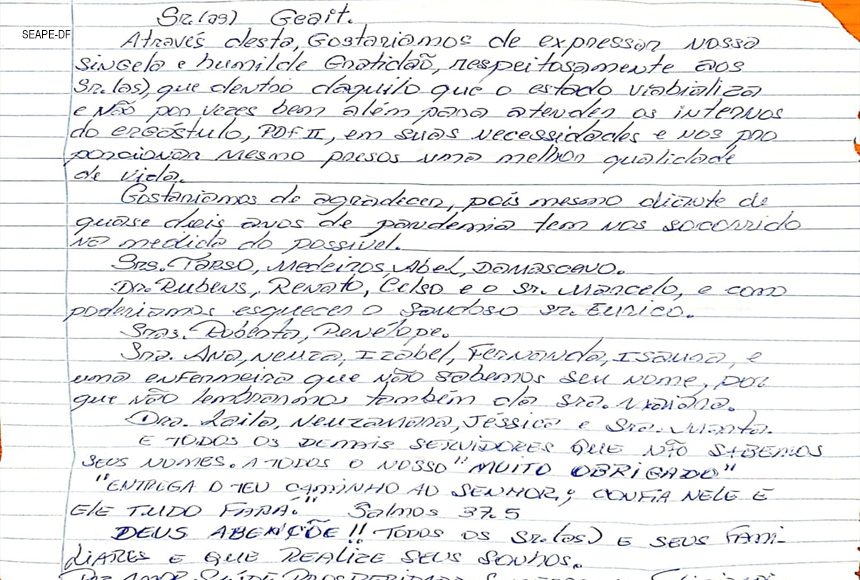 Sr.(as) Geait.
SEAPE-DF
Através desta, Gostariamos de expressar nossa
singela e humilde Gratidão, respeitosamente aos
Sr.(as), que dentro daquilo que o estado viabializa
e não por vezes bem além para atender os internos
do ergástulo, PDF II, em suas necessidades e nos pro
porcionar mesmo presos uma melhor qualidade
de vida.
Gostariamos de agradecer, pois mesmo diante de
quase dois anos de pandemia tem nos socorrido
na medida do possível.
Srs. Tarso, Medeiros, Abel, Damasceno.
Dr. Rubens, Renato, Celso e o Sr. Marcelo, e como
poderiamos esquecer o Saudoso Sr. Eurico.
Sras. Roberta, Penélope.
Sra. Ana, Neuza, Izabel, Fernanda, Isaura, e
uma enfermeira que não sabemos seu nome, por
que não lembrarmos também da Sra.
Dra. Laila, Neuzamara, Jéssica e Sra.
E TODOS OS DEMAIS SERVIDORES QUE NÃO SABEMOS
SEUS NOMES. A TODOS O NOSSO "MUITO OBRIGADO"
"ENTREGA O TEU CAMINHO AO SENHOR, CONFIA NELE E
ELE TUDO FARA." Salmos 37.5
DEUS ABENÇÕE!! TODOS OS Sr.(as) E SEUS FAMI
LIARES E QUE REALIZE SEUS SONHOS.